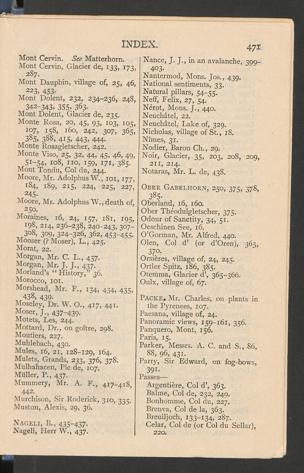 INDEX.
471
Mont Cervin. See Matterhorn.
Mont Cervin, Glacier de, 133, 173,
287.
Mont Dauphin, village of, 25, 46,
223, 453.
Mont Dolent, 232, 234–236, 248,
342–343, 355, 363.
Mont Dolent, Glacier de, 235.
Monte Rosa, 20, 45, 93, 103, 105,
107, 158, 160, 242, 307, 365,
385, 388, 415, 443, 444.
Monte Rosagletscher, 242.
Monte Viso, 25, 32, 44, 45, 46, 49,
51–54, 108, 110, 159, 171, 385.
Mont Tondu, Col du, 244.
Moore, Mr. Adolphus W., 101, 177,
184, 189, 215, 224, 225, 227,
245.
Moore, Mr. Adolphus W., death of,
250.
Moraines, 16, 24, 157, 181, 195,
198, 214, 236–238, 240–243, 307–
308, 309, 324–326, 362, 453–455.
Mooser (? Moser), L., 425.
Morat, 22.
Morgan, Mr. C. L., 437.
Morgan, Mr. J. J., 437.
Morland's "History," 36.
Morocco, 101.
Morshead, Mr. F., 134, 434, 435,
438, 439.
Moseley, Dr. W. O., 417, 441.
Moser, J., 437–439.
Motets, Les, 244.
Mottard, Dr., on goître, 298.
Moutiers, 227.
Muhlebach, 430.
Mules, 16, 21, 128–129, 164.
Mulets, Grands, 233, 376, 378.
Mulhahacen, Pic de, 107.
Müller, P., 437.
Mummery, Mr. A. F., 417–418,
442.
Murchison, Sir Roderick, 310, 335.
Muston, Alexis, 29, 36.
NAGELI, B., 435–437.
Nageli, Herr W., 437.
Nance, J. J., in an avalanche, 399–
403.
Nantermod, Mons. Jos., 439.
National sentiments, 33.
Natural pillars, 54–55.
Neff, Felix, 27, 54.
Nérot, Mons. J., 440.
Neuchâtel, 22.
Neuchâtel, Lake of, 329.
Nicholas, village of St., 18.
Nîmes, 31.
Nodier, Baron Ch., 29.
Noir, Glacier, 35, 203, 208, 209,
211, 214.
Notaras, Mr. L. de, 438.
OBER GABELHORN, 250, 375, 378,
385.
Oberland, 16, 160.
Ober Théodulgletscher, 375.
Odour of Sanctity, 34, 51.
Oeschinen See, 16.
O'Gorman, Mr. Alfred, 440.
Olen, Col d' (or d'Oren), 365,
370.
Orsières, village of, 24, 245.
Ortler Spitz, 186, 385.
Otemma, Glacier d', 365–366.
Oulx, village of, 67.
PACKE, Mr. Charles, on plants in
the Pyrenees, 107.
Paesana, village of, 24.
Panoramic views, 159–161, 356.
Panquero, Mont, 156.
Paris, 15.
Parker, Messrs. A. C. and S., 86,
88, 96, 431.
Parry, Sir Edward, on fog-bows,
391.
Passes—
Argentière, Col d', 363.
Balme, Col de, 232, 249.
Bonhomme, Col du, 227.
Brenva, Col de la, 363.
Breuiljoch, 133–134, 287.
Celar, Col de (or Col du Sellar),
220.